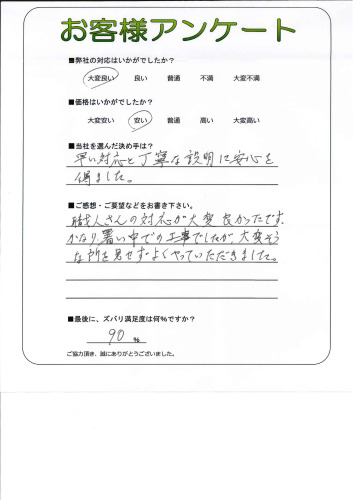 お客様アンケート
■弊社の対応はいかがでしたか？
大変良い 良い 普通 不満 大変不満
■価格はいかがでしたか？
大変安い 安い 普通 高い 大変高い
■当社を選んだ決め手は？
早い対応と丁寧な説明に安心を
得ました。
■ご感想・ご要望などをお書き下さい。
職人さんの対応が大変良かったです。
かなり暑い中での工事でしたが、大変そう
な所を見せずよくやっていただきました。
■最後に、ズバリ満足度は何%ですか？
90 %
ご協力頂き、誠にありがとうございました。